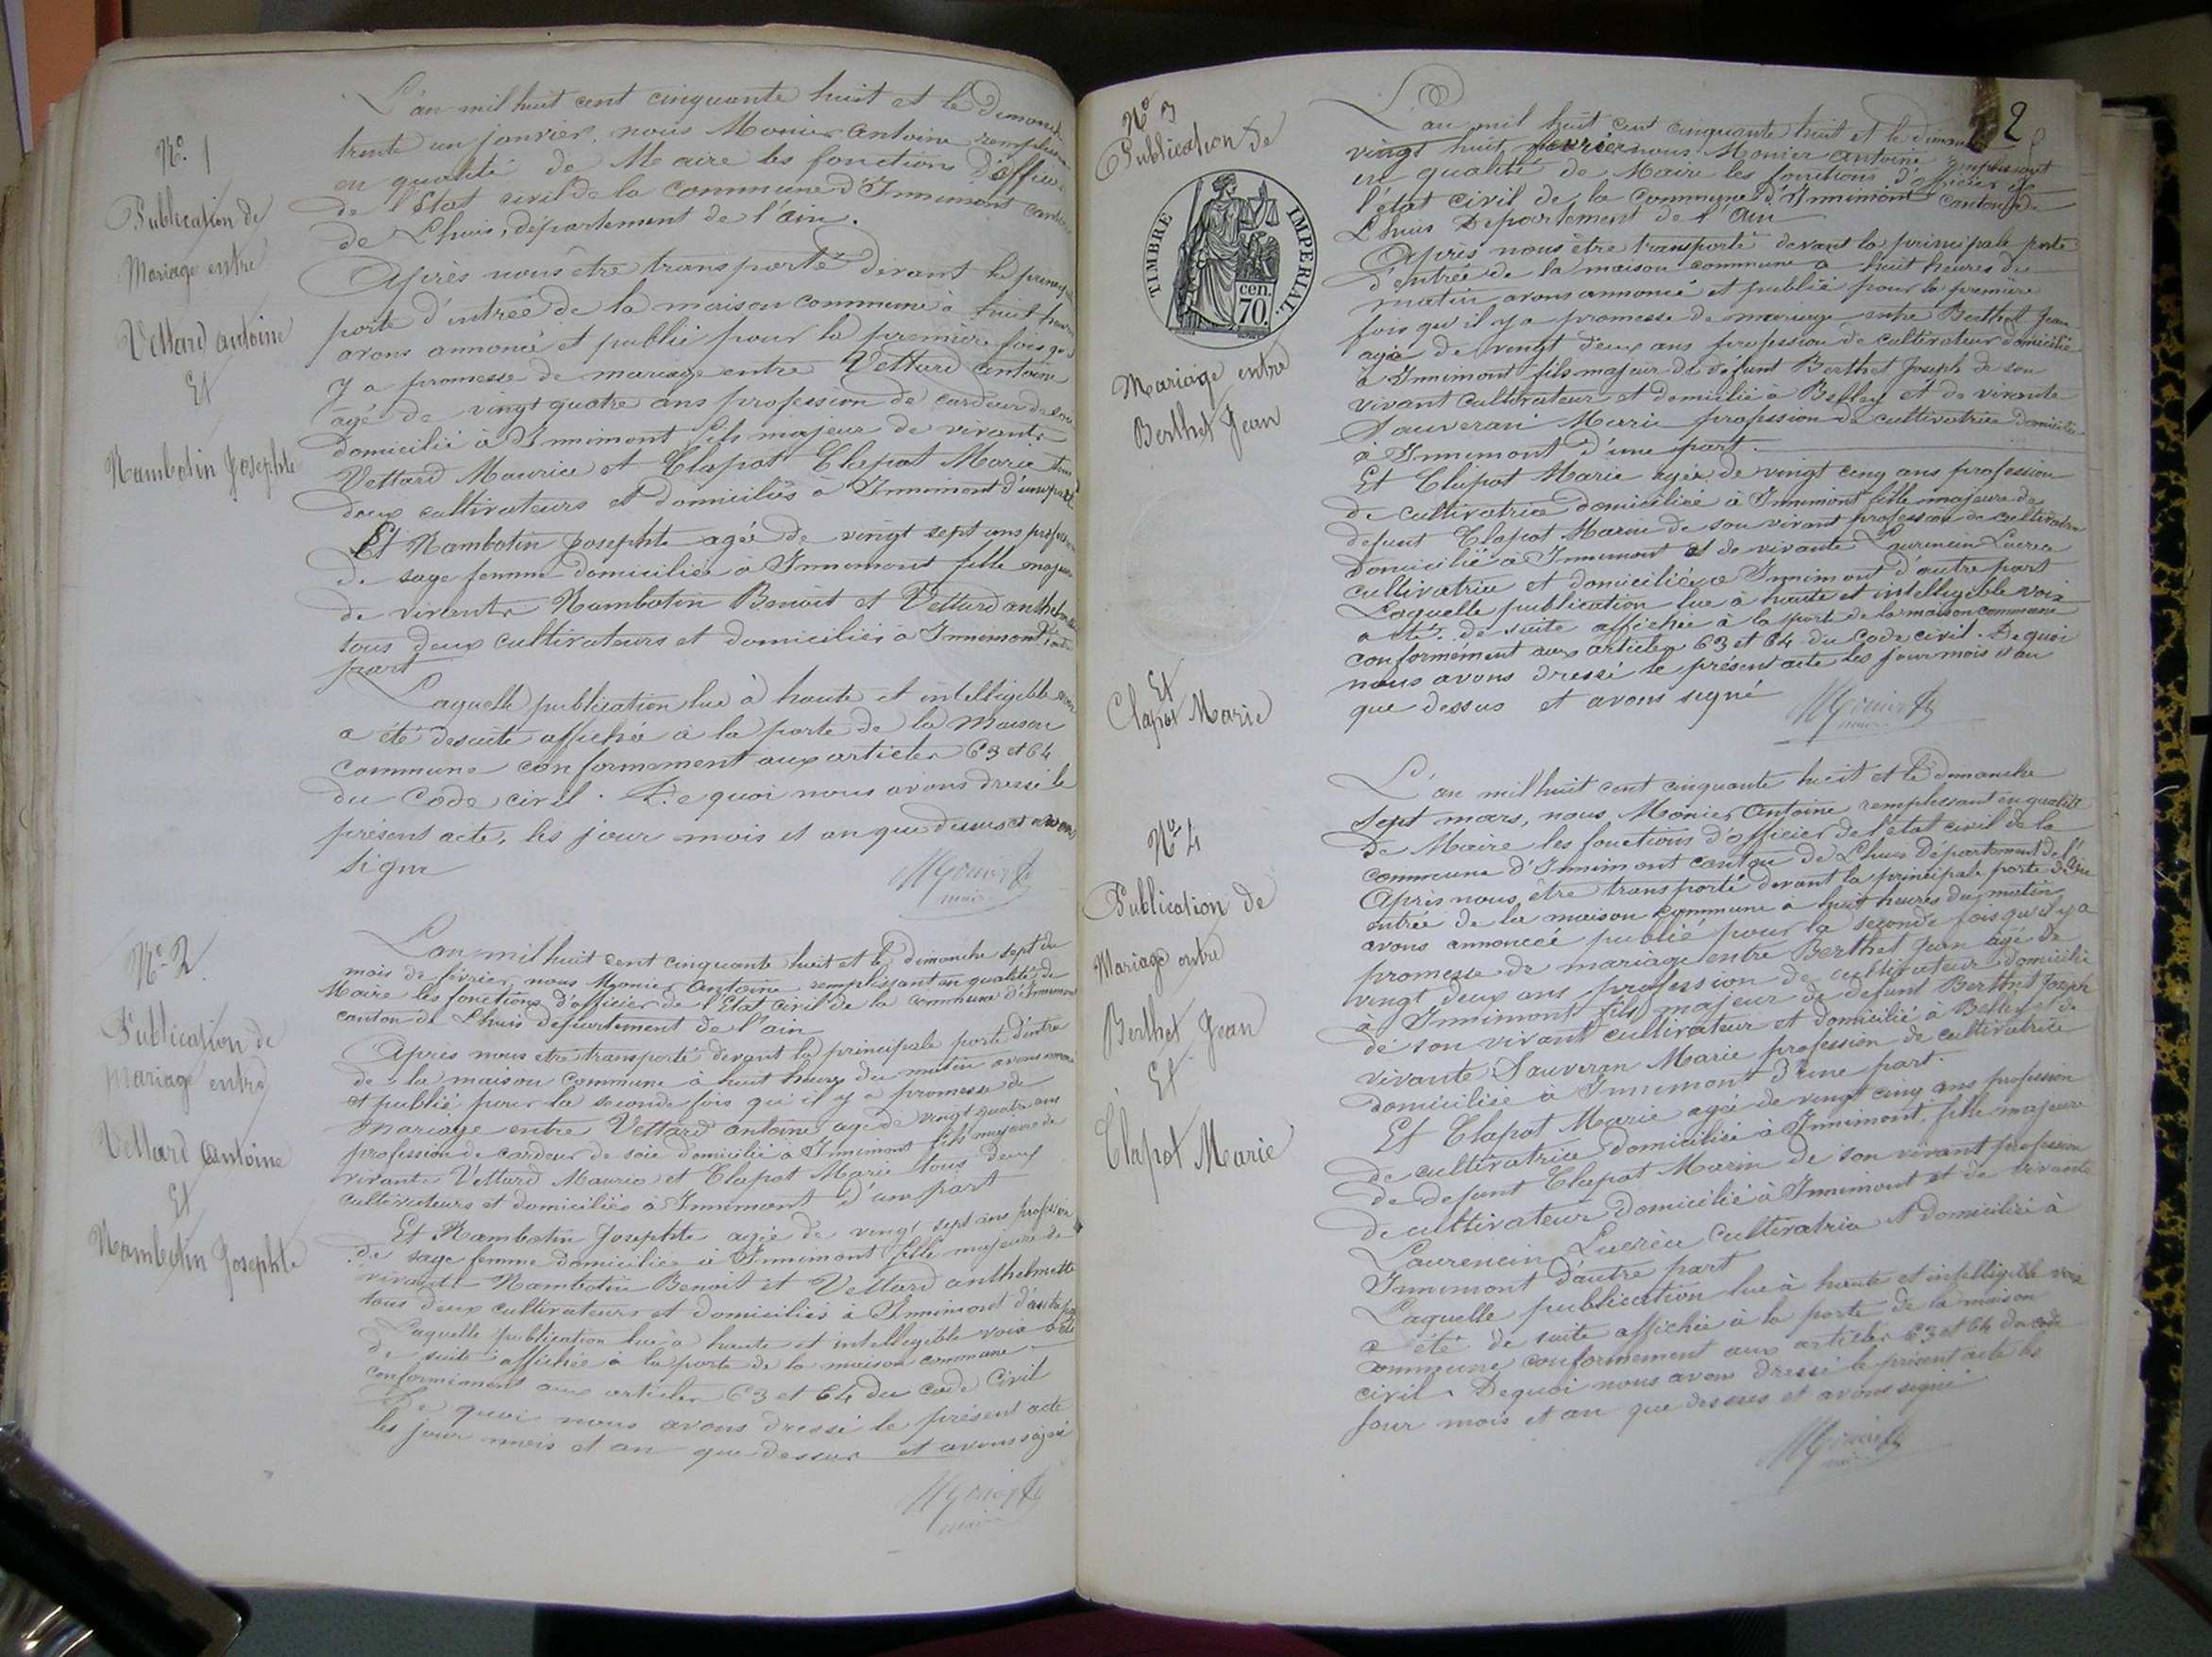 N° 1
Publication de
Mariage entre
Vettard antoine
Et
Nambotin Josephte
L'an mil huit cent cinquante huit et le dimanche
trente un janvier, nous Monier Antoine remplissant
en qualité de Maire les fonctions d'officier
de l'Etat civil de la commune d'Innimont canton
de Lhuis, département de l'ain.
Après nous être transporté devant la principale
porte d'entrée de la maison commune à huit heures
avons annoncé et publié pour la première fois qu'il
y a promesse de mariage entre Vettard antoine
agé de vingt quatre ans profession de cardeur de soie
domicilié à Innimont fils majeur de vivants
Vettard Maurice et Clapot Clapot Marie tous
deux cultivateurs et domiciliés à Innimont d'une part
Et Nambotin Josephte agée de vingt sept ans profession
de sage femme domiciliée à Innimont fille majeure
de vivents Nambotin Benoit et Vettard anthelmette
tous deux cultivateurs et domiciliés à Innimont d'autre
part
Laquelle publication lue à haute et intelligible voix
a été desuite affichée à la porte de la Maison
commune conformement aux articles 63 et 64
du Code civil. De quoi nous avons dressé le
présent acte, les jour mois et an que dessus et avons
signé
Monier
maire
N° 2
Publication de
Mariage entre
Vettard Antoine
Et
Nambotin Josephte
L'an mil huit cent cinquante huit et le dimanche sept du
mois de février, nous Monier Antoine remplissant en qualité de
Maire les fonctions d'officier de l'Etat civil de la commune d'Innimont
canton de Lhuis département de l'ain
Après nous etre transporté devant la principale porte d'entrée
de la maison commune à huit heures du matin avons annoncé
et publié pour la seconde fois qu'il y a promesse de
mariage entre Vettard antoine agé de vingt quatre ans
profession de cardeur de soie domicilié à Innimont fils majeur de
vivants Vettard Maurice et Clapot Marie tous deux
cultivateurs et domiciliés à Innimont d'une part
Et Nambotin Josephte agée de vingt sept ans profession
de sage femme domiciliée à Innimont fille majeure de
vivants Nambotin Benoit et Vettard anthelmette
tous deux cultivateurs et domiciliés à Innimont d'autre part
Laquelle publication lue à haute et intelligible voix a été
de suite affichée à la porte de la maison commune
conformément aux articles 63 et 64 du code Civil
De quoi nous avons dressé le présent acte
les jour mois et an que dessus et avons signé
Monier
maire
2
N° 3
Publication de
TIMBRE IMPERIAL.
cen.
70.
Mariage entre
Berthet Jean
Et
Clapot Marie
L'an mil huit cent cinquante huit et le dimanche
vingt huit février nous Monier Antoine remplissant
en qualité de Maire les fonctions d'officier de
l'état civil de la commune d'Innimont Canton de
Lhuis Département de l'Ain
Après nous être transporté devant la principale porte
d'entrée de la maison commune à huit heures du
matin avons annoncé et publié pour la première
fois qu'il y a promesse de mariage entre Berthet Jean
agé de vingt deux ans profession de cultivateur domicilié
à Innimont fils majeur de défunt Berthet Joseph de son
vivant cultivateur et domicilié à Belley et de vivante
Sauveran Marie profession de cultivatrice domiciliée
à Innimont d'une part.
Et Clapot Marie agée de vingt cinq ans profession
de cultivatrice domiciliée à Innimont fille majeure de
defunt Clapot Marin de son vivant profession de cultivateur
domicilié à Innimont et de vivante Laurencin Lucrèce
cultivatrice et domiciliée à Innimont d'autre part
Laquelle publication lue à haute et intelligible voix
a été de suite affichée à la porte de la maison commune
conformément aux articles 63 et 64 du Code civil. De quoi
nous avons dressé le présent acte les jour mois et an
que dessus et avons signé
Monier
maire
N° 4
Publication de
Mariage entre
Berthet Jean
Et
Clapot Marie
L'an mil huit cent cinquante huit et le dimanche
Sept mars, nous Monier Antoine remplissant en qualité
De Maire les fonctions d'officier de l'état civil de la
commune d'Innimont canton de Lhuis Département de l'Ain
Après nous être transporté devant la principale porte d'
entrée de la maison commune à huit heures du matin
avons annoncé publié pour la seconde fois qu'il y a
promesse de mariage entre Berthet Jean âgé de
vingt deux ans profession de cultivateur domicilié
à Innimont fils majeur de defunt Berthet Joseph
de son vivant cultivateur et domicilié à Belley et de
vivante Sauveran Marie profession de cultivatrice
domiciliée à Innimont d'une part.
Et Clapot Marie agée de vingt cinq ans profession
de cultivatrice domiciliée à Innimont, fille majeure
de defunt Clapot Marin de son vivant profession
de cultivateur domicilié à Innimont et de vivante
Laurencin Lucrèce Cultivatrice et domiciliée à
Innimont d'autre part
Laquelle publication lue à haute et intelligible voix
a été de suite affichée à la porte de la maison
commune, conformement aux articles 63 et 64 du code
civil. De quoi nous avons dressé le présent acte les
jour mois et an que dessus et avons signé
Monier
maire